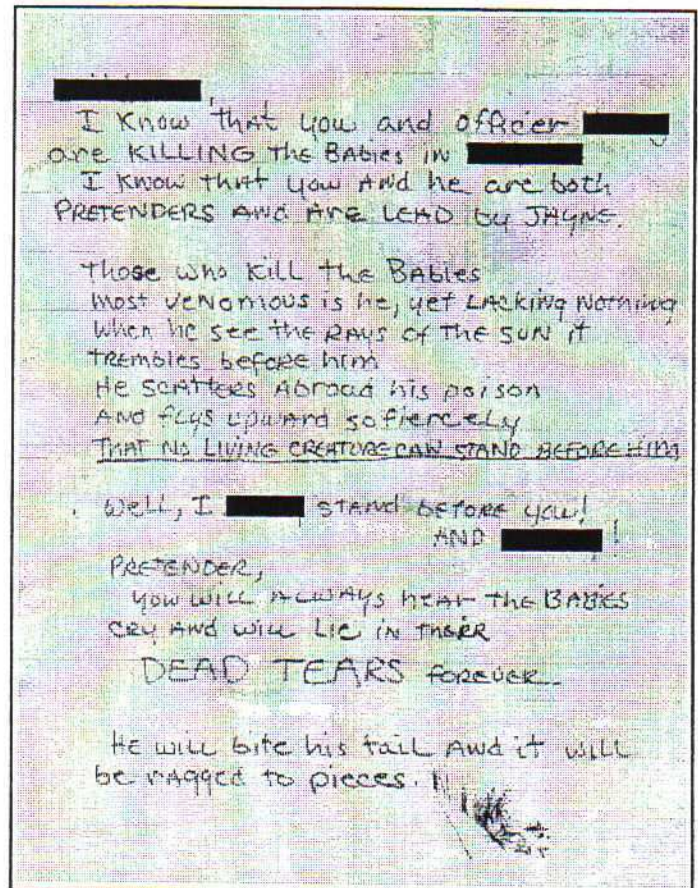 I Know that you and officer
are KILLING the BABies in
I Know that you AND he are both
PRETENDERS AND Are LEAD by JAYNE.
Those who Kill the BABIES
most VENOMIOUS is he, yet LACKING NOTHING
When he see the RAYS of THE SUN it
TREMBLES before him
He SCATTERS Abroad his poison
AND FLYS upward so fiercely
THAT NO LIVING CREATURE CAN STAND BEFORE HIM
Well, I STAND BEFORE you!
AND !
PRETENDER,
you will ALWAYS hear the BABIES
CRY AND will LIE in THEIR
DEAD TEARS forever.
HE will bite his tail AND it will
be ragged to pieces.